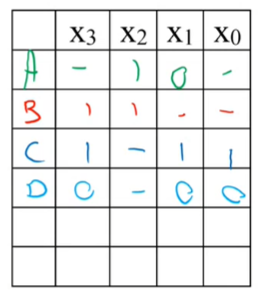 x3 x2 x1 x0
A - 1 0 -
B 1 1 - -
C 1 - 1 1
D 0 - 0 0